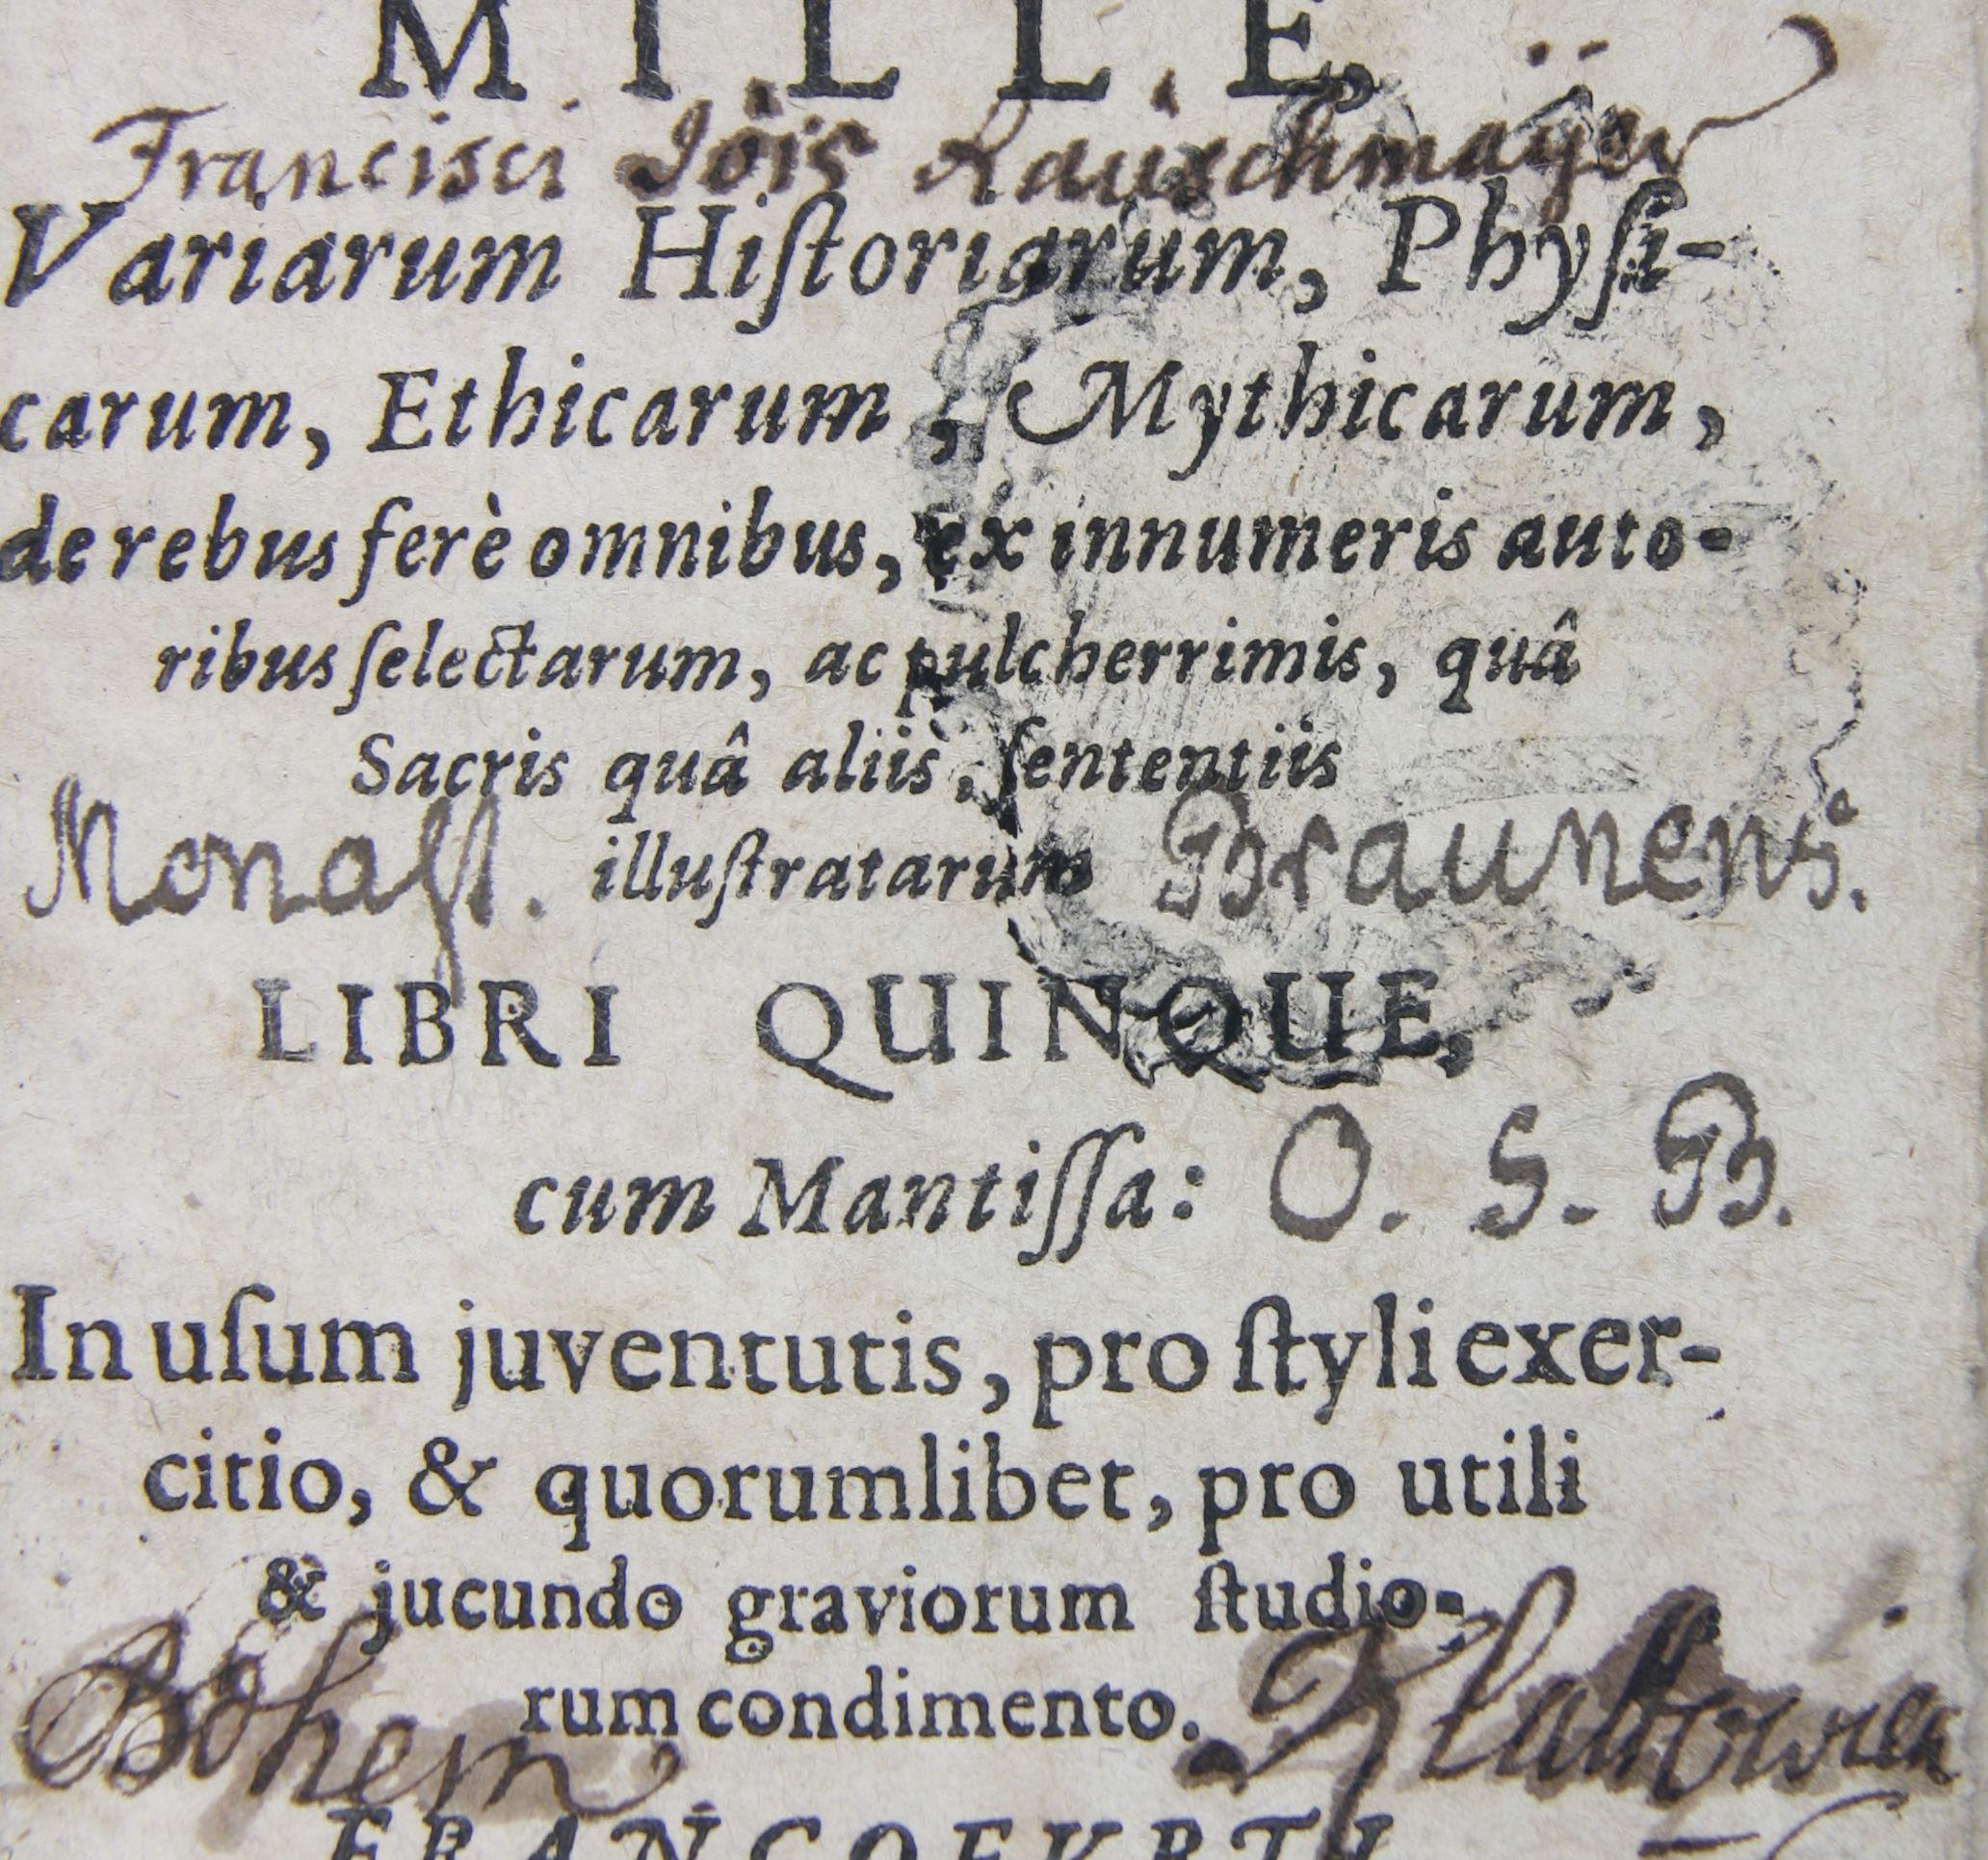 MILLE,
Francisci Jois Rauschmayer
Variarum Hiſtoriarum, Phyſi-
carum, Ethicarum, Mythicarum,
de rebus ferè omnibus, ex innumeris auto-
ribus ſelectarum, ac pulcherrimis, quâ
Sacris quâ aliis, ſententiis
Monaſt. illuſtratarum Braunens.
LIBRI QUINQUE,
cum Mantiſſa: O. S. B.
In uſum juventutis, pro ſtyli exer-
citio, & quorumlibet, pro utili
& jucundo graviorum ſtudio-
rum condimento.
Bohem Klattovien
FRANCOFURTI